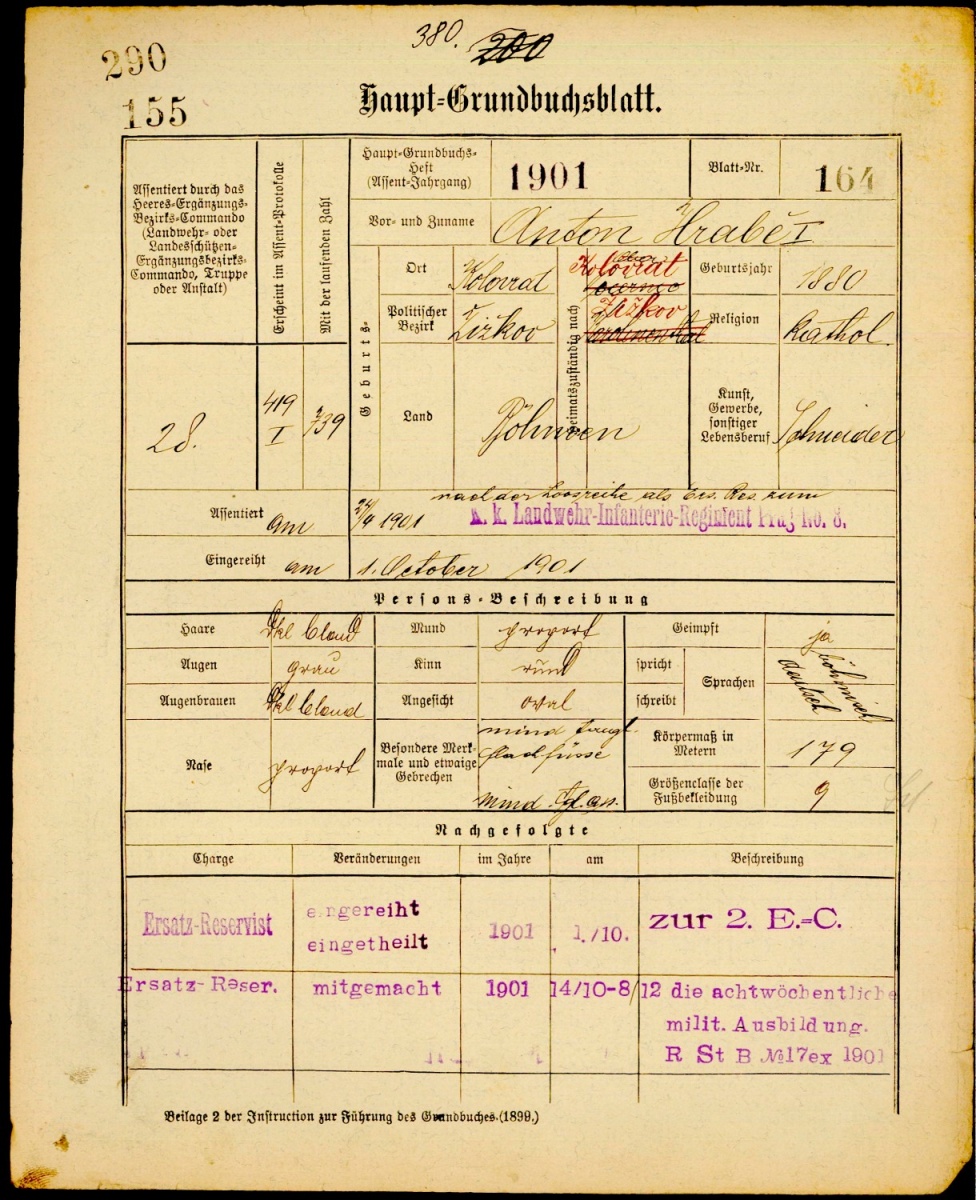 290
155
380. 200
Haupt-Grundbuchsblatt.
Assentiert durch das
Heeres-Ergänzungs-
Bezirks-Commando
(Landwehr- oder
Landesschützen-
Ergänzungsbezirks-
Commando, Truppe
oder Anstalt)
Erscheint im Assent-Protokolle
Mit der laufenden Zahl
Haupt-Grundbuchs-
Heft
(Assent-Jahrgang)
1901
Blatt-Nr.
164
Vor- und Zuname
Anton Hrabě I
Geburts-
Ort
Kolovrat
Heimatszuständig nach
Kolovrat
Geburtsjahr
1880
Politischer
Bezirk
Žižkov
Žižkov
Religion
Kathol.
28.
419
I
739
Land
Böhmen
Kunst,
Gewerbe,
sonstiger
Lebensberuf
Schneider
nach der Losreihe als Ers. Res. zum
Assentiert am 24/4 1901 K. k. Landwehr-Infanterie-Regiment Prag No. 8.
Eingereiht am 1. October 1901
Persons-Beschreibung
Haare
Dkl blond
Mund
proport
Geimpft
ja
Augen
grau
Kinn
rund
spricht
schreibt
Sprachen
böhmisch
deutsch
Augenbrauen
Dkl blond
Angesicht
oval
Nase
proport
Besondere Merk-
male und etwaige
Gebrechen
mind taugl.
flachfüsse
Körpermaß in
Metern
179
Größenclasse der
Fußbekleidung
9
Nachgefolgte
Charge Veränderungen im Jahre am Beschreibung
Ersatz-Reservist
eingereiht
eingetheilt
1901 1./10. zur 2. E.-C.
Ersatz-Reser. mitgemacht 1901 14/10-8/12 die achtwöchentliche
milit. Ausbildung.
R St B №17ex 1901
Beilage 2 der Instruction zur Führung des Grundbuches. (1899.)